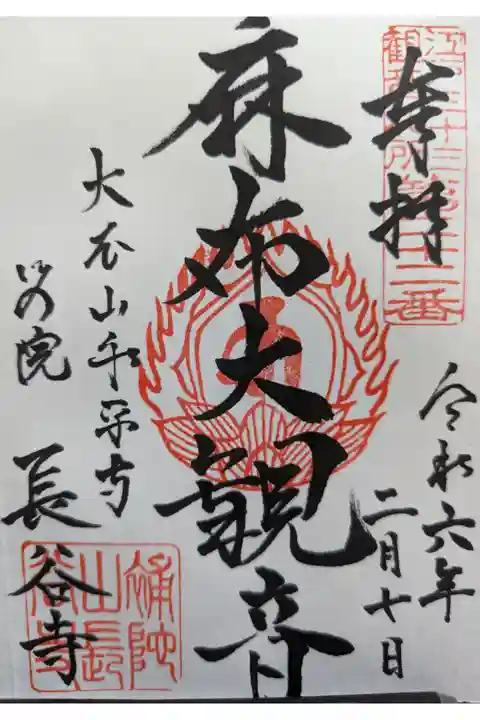 江戸三十三
観音札所
第二十二番
奉拝
令和六年
二月七日
麻布大観音
大本山永平寺
別院
長谷寺
補陀
山長
谷寺